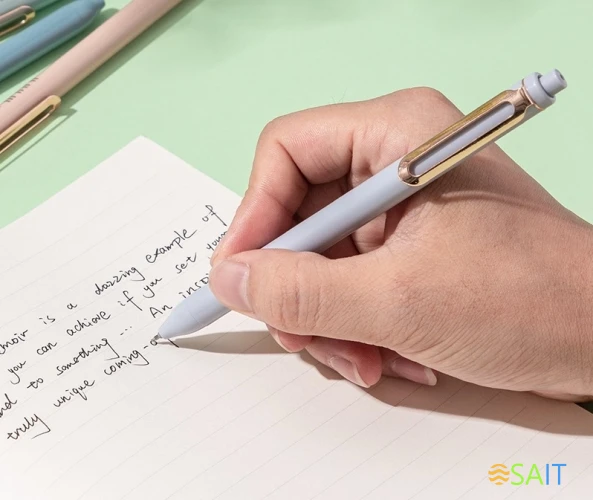 is a dazzling example of
you can achieve if you set your
to something... An
truly unique coming-o
SAIT